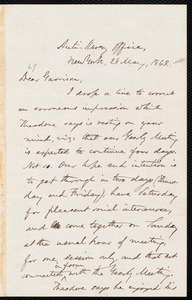 Anti-Slavery Office,
New York, 28 May, 1862.
Dear Garrison,
I drop a line to correct
an erroneous impression which
Theodore says is resting on your
mind, viz: that our Yearly Meeting
is expected to continue four days.
Not so. Our hope and intention is
to get through in two days (Thurs-
day and Friday), have Saturday
for pleasant social intercourse,
and come together on Sunday
at the usual hour of meeting,
for one session only, and that not
connected in form with the Yearly Meeting.
Theodore says he enjoyed his